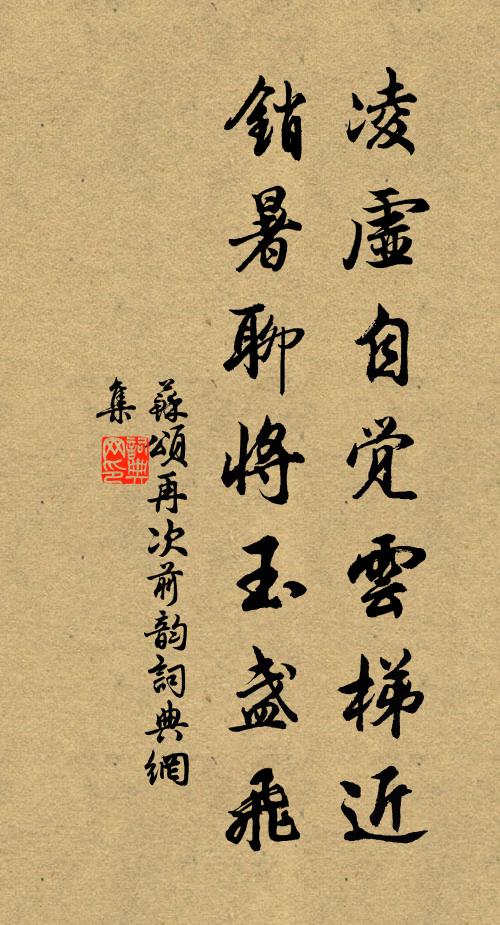 凌虛自覺雲梯近
銷暑聊將玉盞飛
蘇頌再次前韵詞典網
集
詞典网印